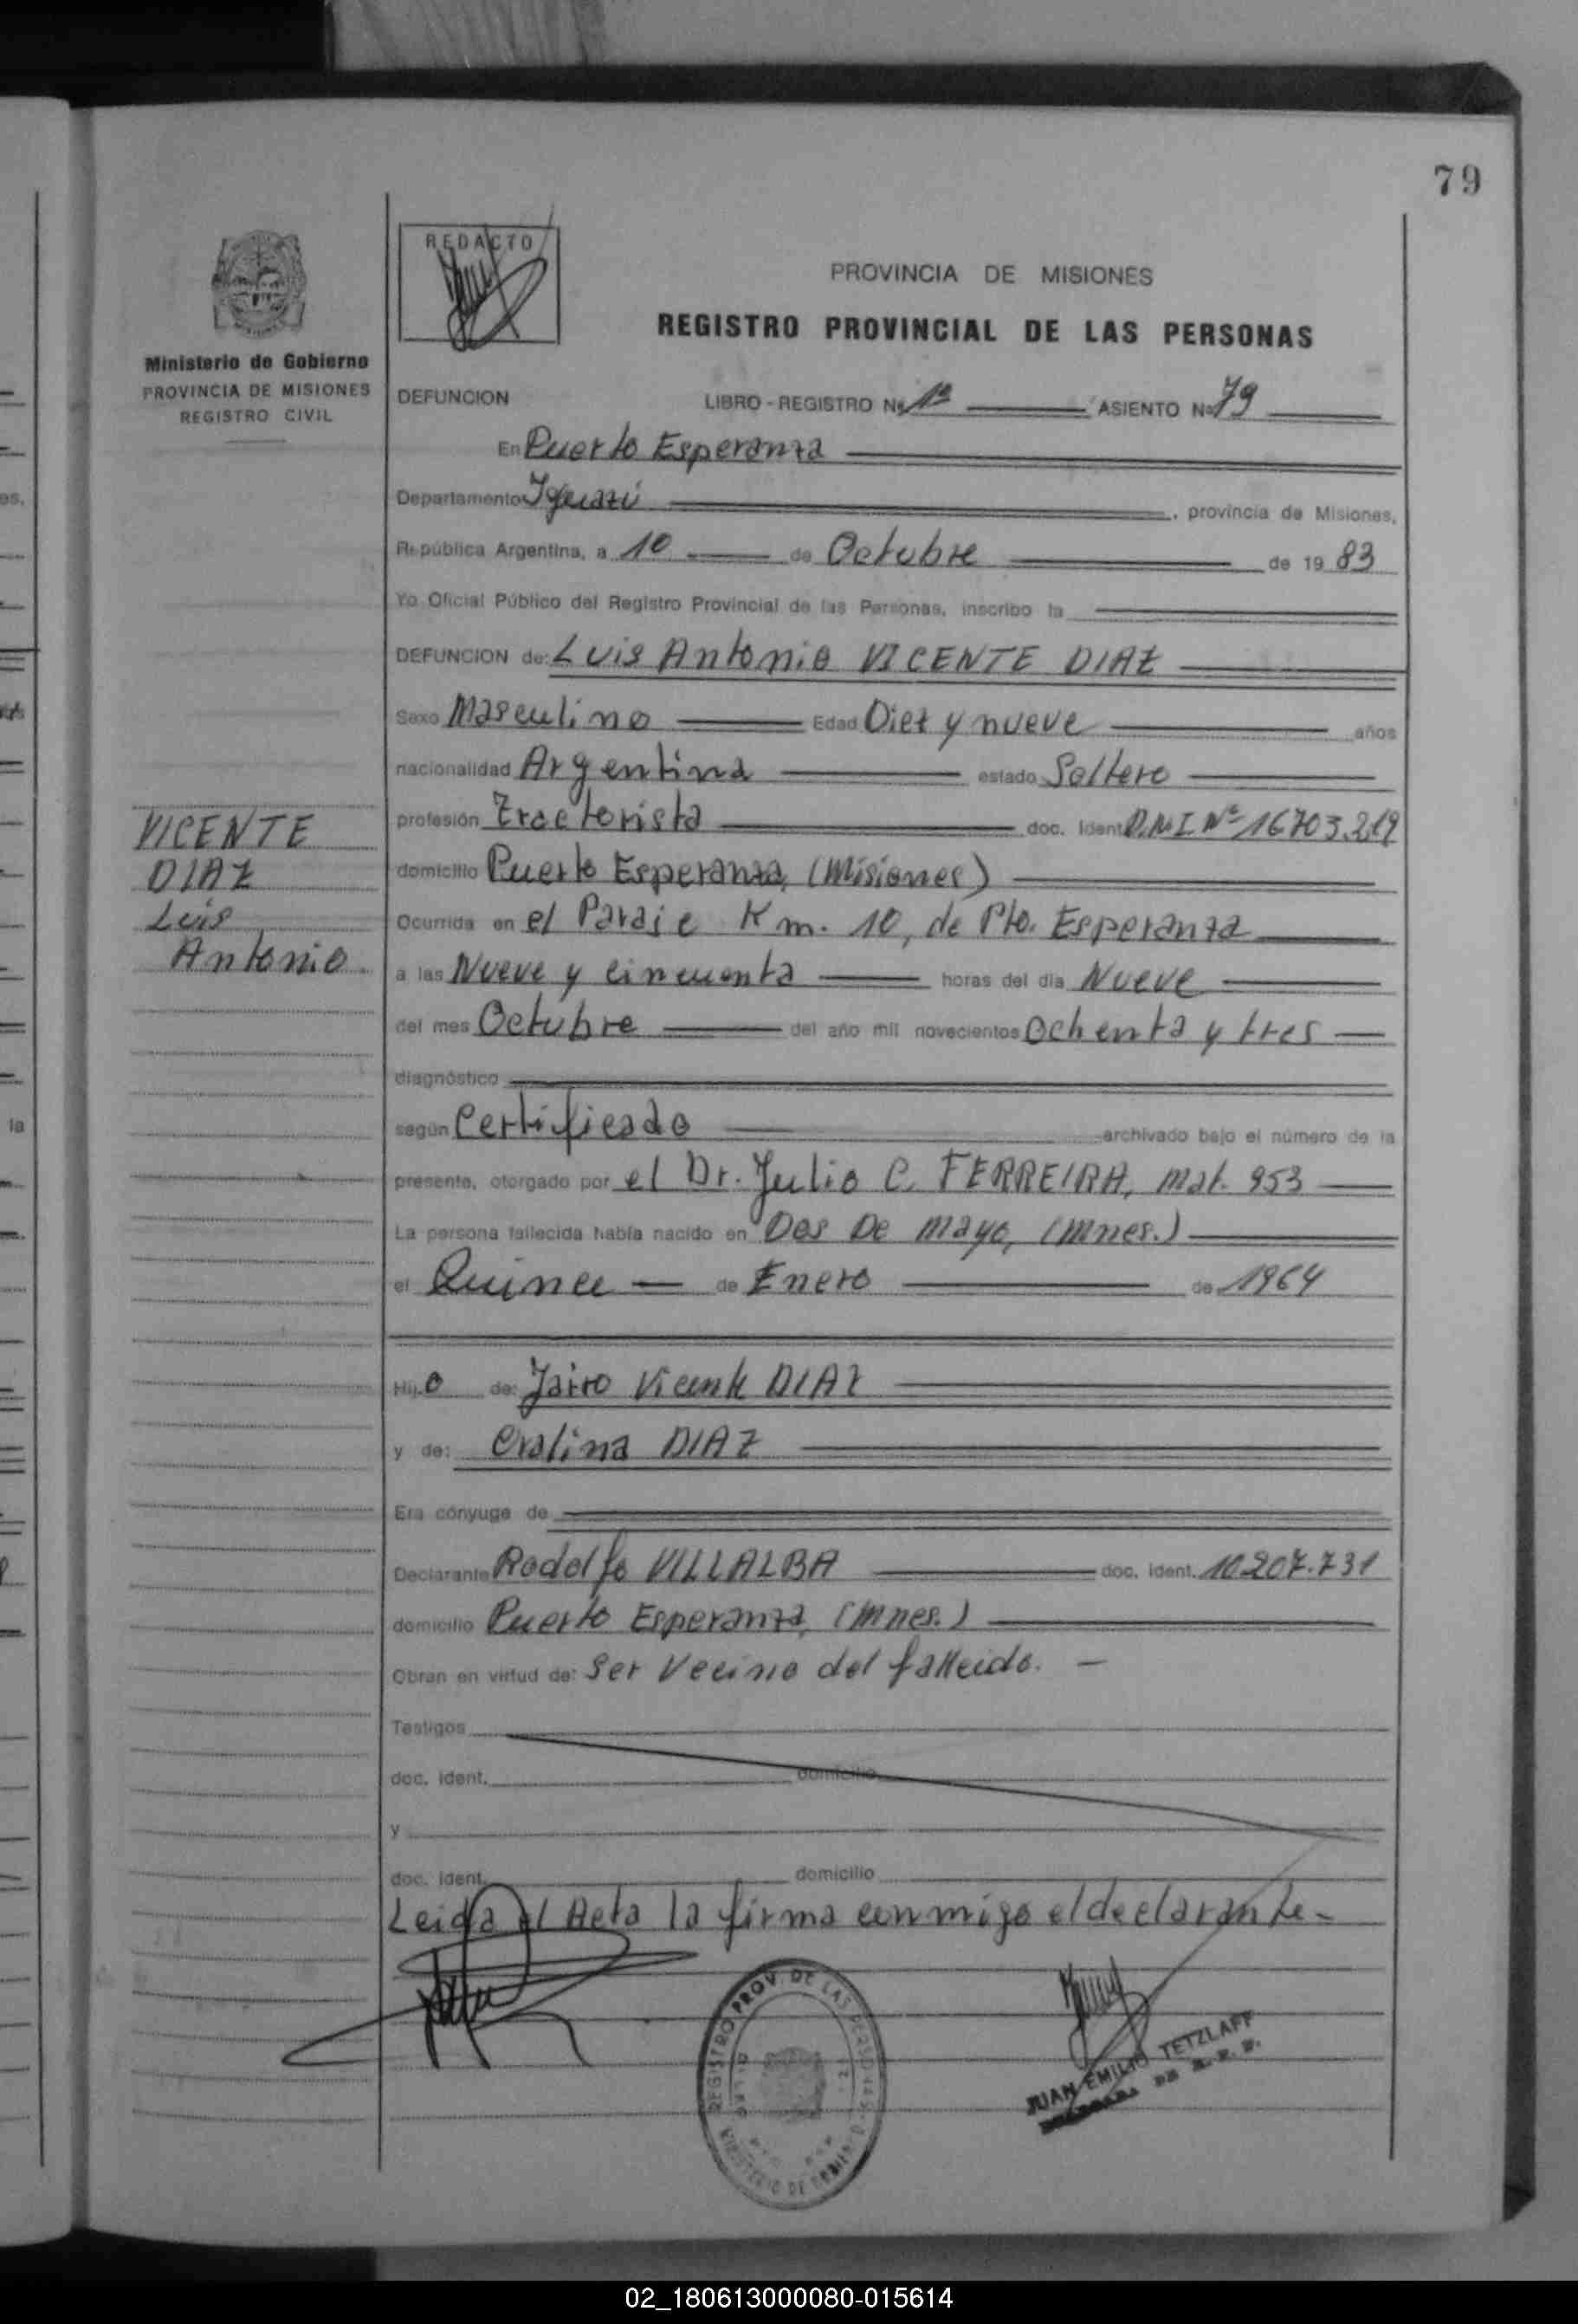 79
REDACTO
PROVINCIA DE MISIONES
REGISTRO PROVINCIAL DE LAS PERSONAS
Ministerio de Gobierno
PROVINCIA DE MISIONES
REGISTRO CIVIL
DEFUNCION LIBRO - REGISTRO Nº 1º ASIENTO Nº 79
En Puerto Esperanza
Departamento Iguazú , provincia de Misiones,
República Argentina, a 10 de Octubre de 1983
Yo Oficial Público del Registro Provincial de las Personas, inscribo la
DEFUNCION de: Luis Antonio VICENTE DIAZ
Sexo Masculino Edad Diez y nueve años
nacionalidad Argentina estado Soltero
profesión Tractorista doc. Ident D.N.I Nº 16.703.219
VICENTE
DIAZ
Luis
Antonio.
domicilio Puerto Esperanza, (Misiones)
Ocurrida en el Paraje Km. 10, de Pto. Esperanza
a las Nueve y cincuenta horas del día Nueve
del mes Octubre del año mil novecientos Ochenta y tres
diagnóstico
según Certificado archivado bajo el número de la
presente, otorgado por el Dr. Julio C. FERREIRA, mat. 953
La persona fallecida había nacido en Dos De mayo, (mnes.)
el Quince de Enero de 1964
Hijo de: Jairo Vicente DIAZ
y de: Eralina DIAZ
Era cónyuge de
Declarante Rodolfo VILLALBA doc. ident. 10.207.731
domicilio Puerto Esperanza, (mnes.)
Obran en virtud de: Ser Vecino del fallecido. —
Testigos
doc. ident. domicilio
y
doc. ident. domicilio
Leida el Acta la firma conmigo el declarante-
REGISTRO PROV. DE LAS PERSONAS
MINISTERIO DE GOBIERNO
JUAN EMILIO TETZLAFF
02_180613000080-015614